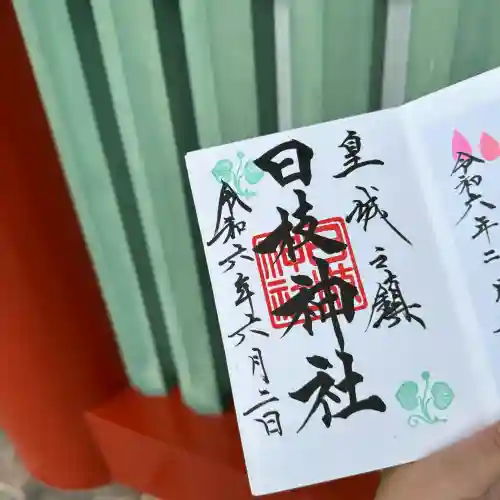 令和六年二
皇城之鎮
日枝神社
令和六年六月二日